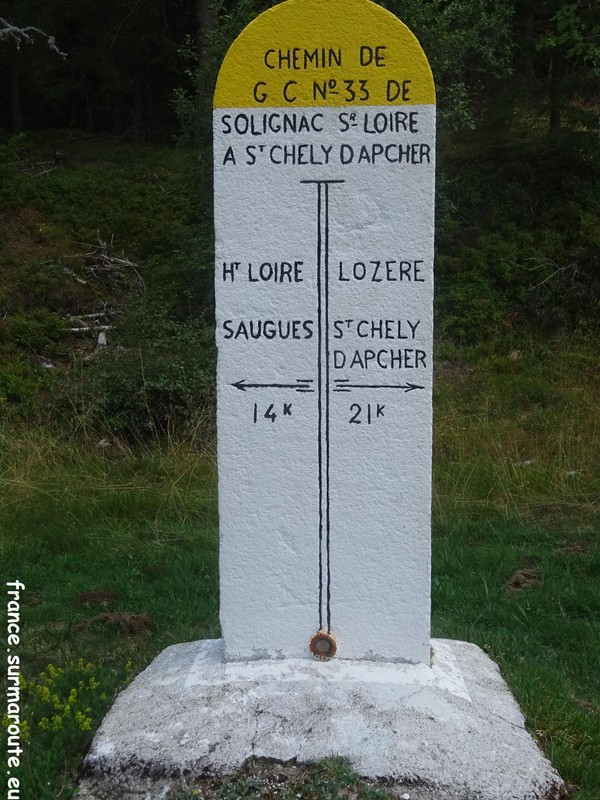 CHEMIN DE
G C Nº 33 DE
SOLIGNAC SR LOIRE
A ST CHELY D APCHER
HT LOIRE
SAUGUES
14K
LOZERE
ST CHELY
D APCHER
21K
france.surmaroute.eu